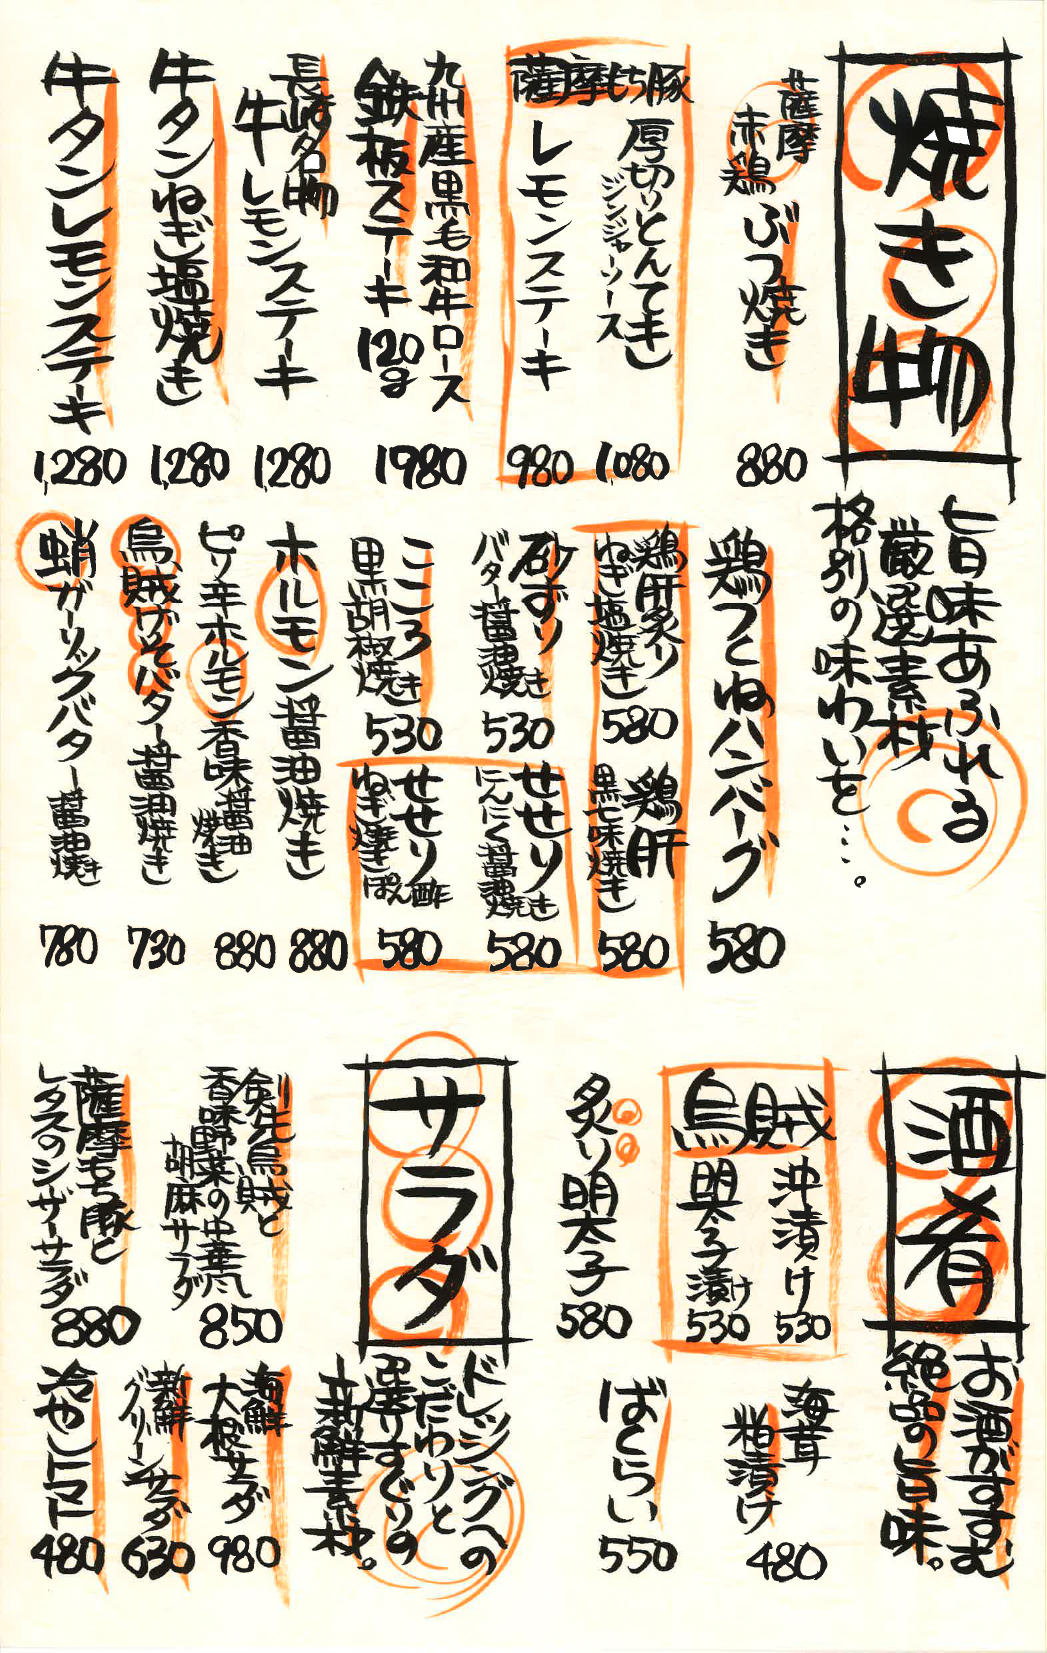 焼き物
旨味あふれる
厳選素材
格別の味わいを…。
薩摩
赤鶏ぶつ焼き
880
薩摩もち豚
厚切りとんてき
ジンジャーソース
1,080
レモンステーキ
980
九州産黒毛和牛ロース
鉄板ステーキ120g
1980
長崎名物
牛レモンステーキ
1,280
牛タンねぎ塩焼き
1,280
牛タンレモンステーキ
1,280
鶏つくねハンバーグ
580
鶏肝炙り
ねぎ塩焼き
580
鶏肝
黒七味焼き
580
砂ずり
バター醤油焼き
530
せせり
にんにく醤油焼き
580
こころ
黒胡椒焼き
530
せせり
ねぎ焼きぽん酢
580
ホルモン醤油焼き
880
ピリ辛ホルモン香味醤油
焼き
880
烏賊げそバター醤油焼き
730
蛸ガーリックバター醤油焼き
780
酒肴
お酒がすすむ
絶品の旨味。
烏賊
沖漬け
530
明太子漬け
530
炙り明太子
580
海茸
粕漬け
480
ばくらい
550
サラダ
ドレッシングへの
こだわりと
選りすぐりの
新鮮素材。
剣先烏賊と
香味野菜の中華風
胡麻サラダ
850
薩摩もち豚と
レタスのシーザーサラダ
880
海鮮
大根サラダ
980
新鮮
グリーンサラダ
630
冷やしトマト
480